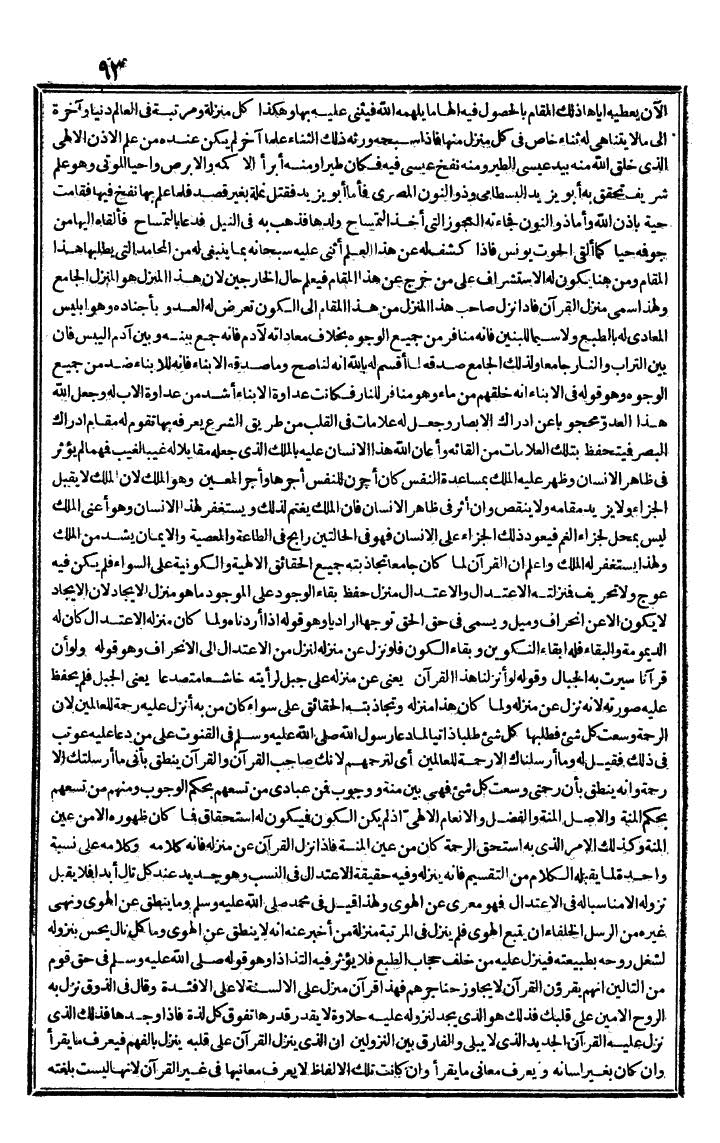 ٩٣
الآن يعطيه اياها ذلك المقام بالحصول فيه الهاما يلهمه الله فيثنى عليه بها وهكذا كل منزلة ومرتبة فى العالم دنيا وآخرة
الى ما لا يتناهى له ثناء خاص فى كل منزل منها فاذا سبحه ورثه ذلك الثناء علما آخر لم يكن عنده من علم الاذن الالهى
الذى خلق الله منه بيد عيسى الطير ومنه نفخ عيسى فيه فكان طيرا ومنه أبرأ الاكمه والابرص وأحيا الموتى وهو علم
شريف تحقق به أبو يزيد البسطامى وذو النون المصرى فأما أبو يزيد فقتل نملة بغير قصد فلما علم بها نفخ فيها فقامت
حية باذن الله وأما ذو النون فجاءته العجوز التى أخذ التمساح ولدها فذهب به فى النيل فدعا بالتمساح فألقاه اليها من
جوفه حيا كما ألقى الحوت يونس فاذا كشف له عن هذا العلم أثنى عليه سبحانه بما ينبغى له من المحامد التى يطلبها هذا
المقام ومن هنا يكون له الاستشراف على من خرج عن هذا المقام فيعلم حال الخارجين لان هذا المنزل هو المنزل الجامع
ولهذا سمى منزل القرآن فاذا نزل صاحب هذا المنزل من هذا المقام الى الكون تعرض له العدو بأجناده وهو ابليس
المعادى له بالطبع ولا سيما للبنين فانه منافر من جميع الوجوه بخلاف معاداته لآدم فانه جمع بينه وبين آدم اليبس فان
بين التراب والنار جامعا ولذلك الجامع صدقه لما أقسم له بالله انه لناصح وما صدقه الابناء فانه للابناء ضد من جميع
الوجوه وهو قوله فى الابناء انه خلقهم من ماء وهو منافر للنار فكانت عداوة الابناء أشد من عداوة الاب له وجعل الله
هذا العدو محجوبا عن ادراك الابصار وجعل له علامات فى القلب من طريق الشرع يعرفه بها تقوم له مقام ادراك
البصر فيتحفظ بتلك العلامات من القائه وأعان الله هذا الانسان عليه بالملك الذى جعله مقابلا له غيبا لغيب فهما لم يؤثر
فى ظاهر الانسان وظهر عليه الملك بمساعدة النفس كان أجرها للنفس أجرها وأجر المعين وهو الملك لان الملك لا يقبل
الجزاء ولا يزيد مقامه ولا ينقص وان أثر فى ظاهر الانسان فان الملك يغتم لذلك ويستغفر لهذا الانسان وهو أعنى الملك
ليس بمحل لجزاء الغم فيعود ذلك الجزاء على الانسان فهو فى الحالتين رابح فى الطاعة والمعصية والايمان يشد من الملك
ولهذا يستغفر له الملك واعلم ان القرآن لما كان جامعا تجاذبته جميع الحقائق الالهية والكونية على السواء فلم يكن فيه
عوج ولا تحريف فنزلته الاعتدال والاعتدال منزل حفظ بقاء الوجود على الموجود ما هو منزل الايجاد لان الايجاد
لا يكون الا عن انحراف وميل ويسمى فى حق الحق توجها اراديا وهو قوله اذا أردناه ولما كان منزله الاعتدال كان له
الديمومة والبقاء فله ابقاء التكوين وبقاء الكون فلو نزل عن منزله لنزل من الاعتدال الى الانحراف وهو قوله ولو أن
قرآنا سيرت به الجبال وقوله لو أنزلنا هذا القرآن يعنى عن منزله على جبل لرأيته خاشعا متصدعا يعنى الجبل فلم يحفظ
عليه صورته لانه نزل عن منزله ولما كان هذا منزله وتجاذبته الحقائق على سواء كان من به أنزل عليه رحمة للعالمين لان
الرحمة وسعت كل شئ فطلبها كل شئ طلبا ذاتيا لما دعا رسول الله صلى الله عليه وسلم فى القنوت على من دعا عليه عوتب
فى ذلك فقيل له وما أرسلناك الا رحمة للعالمين أى لترحمهم لانك صاحب القرآن والقرآن ينطق بأنى ما أرسلتك الا
رحمة وانه ينطق بأن رحمتى وسعت كل شئ فهى بين منة ووجوب فمن عبادى من تسعهم بحكم الوجوب ومنهم من تسعهم
بحكم المنة والاصل المنة والفضل والانعام الالهى اذ لم يكن الكون فيكون له استحقاق فما كان ظهوره الا من عين
المنة وكذلك الامر الذى به استحق الرحمة كان من عين المنة فاذا نزل القرآن عن منزله فانه كلامه وكلامه على نسبة
واحدة لما يقبله الكلام من التقسيم فانه ينزله وفيه حقيقة الاعتدال فى النسب وهو جديد عند كل تال أبدا فلا يقبل
نزوله الا مناسبا له فى الاعتدال فهو معرى عن الهوى ولهذا قيل فى محمد صلى الله عليه وسلم وما ينطق عن الهوى ونهى
غيره من الرسل الخلفاء ان يتبع الهوى فلم ينزل فى المرتبة منزلة من أخبر عنه انه لا ينطق عن الهوى وما كل تال يحس بنزوله
لشغل روحه بطبيعته فينزل عليه من خلف حجاب الطبع فلا يؤثر فيه التذاذا وهو قوله صلى الله عليه وسلم فى حق قوم
من التالين انهم يقرؤن القرآن لا يجاوز حناجرهم فهذا قرآن منزل على الالسنة لا على الافئدة وقال فى الذوق نزل به
الروح الامين على قلبك فذلك هو الذى يجد لنزوله عليه حلاوة لا يقدر قدرها تفوق كل لذة فاذا وجدها فذلك الذى
نزل عليه القرآن الجديد الذى لا يبلى والفارق بين النزولين ان الذى ينزل القرآن على قلبه ينزل بالفهم فيعرف ما يقرأ
وان كان بغير لسانه ويعرف معانى ما يقرأ وان كانت تلك الالفاظ لا يعرف معانيها فى غير القرآن لانها ليست بلغته